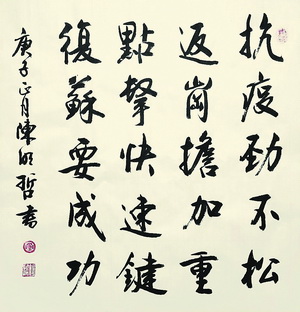 抗疫勁不松
返崗擔加重
點擊快速鍵
復蘇要成功
庚子正月陳明哲書